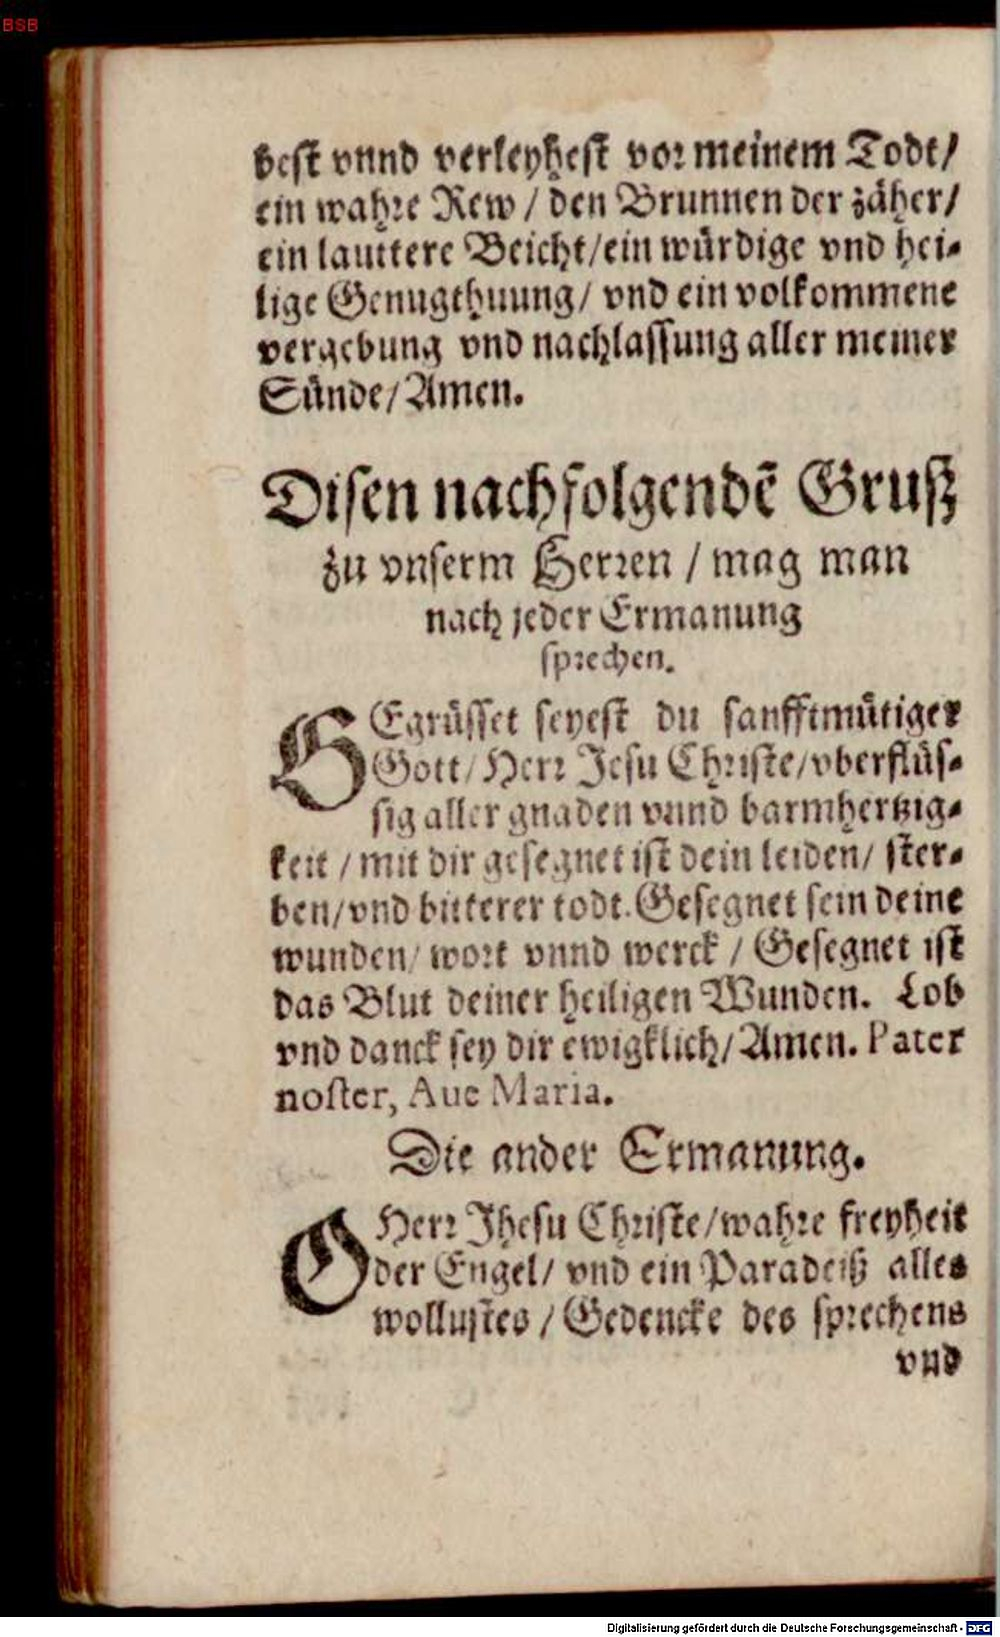 BSB
best vnnd verleyhest vor meinem Todt/
ein wahre Rew / den Brunnen der zäher/
ein lauttere Beicht/ein würdige vnd hei-
lige Genugthuung/ vnd ein volkommene
vergebung vnd nachlassung aller meiner
Sünde/Amen.
Disen nachfolgendē Gruß
zu vnserm Herren / mag man
nach jeder Ermanung
sprechen.
GEgrüsset seyest du sanfftmütiger
Gott/ Herr Jesu Christe/vberflüs-
sig aller gnaden vnnd barmhertzig-
keit / mit dir gesegnet ist dein leiden/ ster-
ben/vnd bitterer todt. Gesegnet sein deine
wunden/ wort vnnd werck / Gesegnet ist
das Blut deiner heiligen Wunden. Lob
vnd danck sey dir ewigklich/Amen. Pater
noster, Aue Maria.
Die ander Ermanung.
O Herr Jhesu Christe/wahre freyheit
der Engel/ vnd ein Paradeiß alles
wollustes / Gedencke des sprechens
vnd
Digitalisierung gefördert durch die Deutsche Forschungsgemeinschaft - DFG